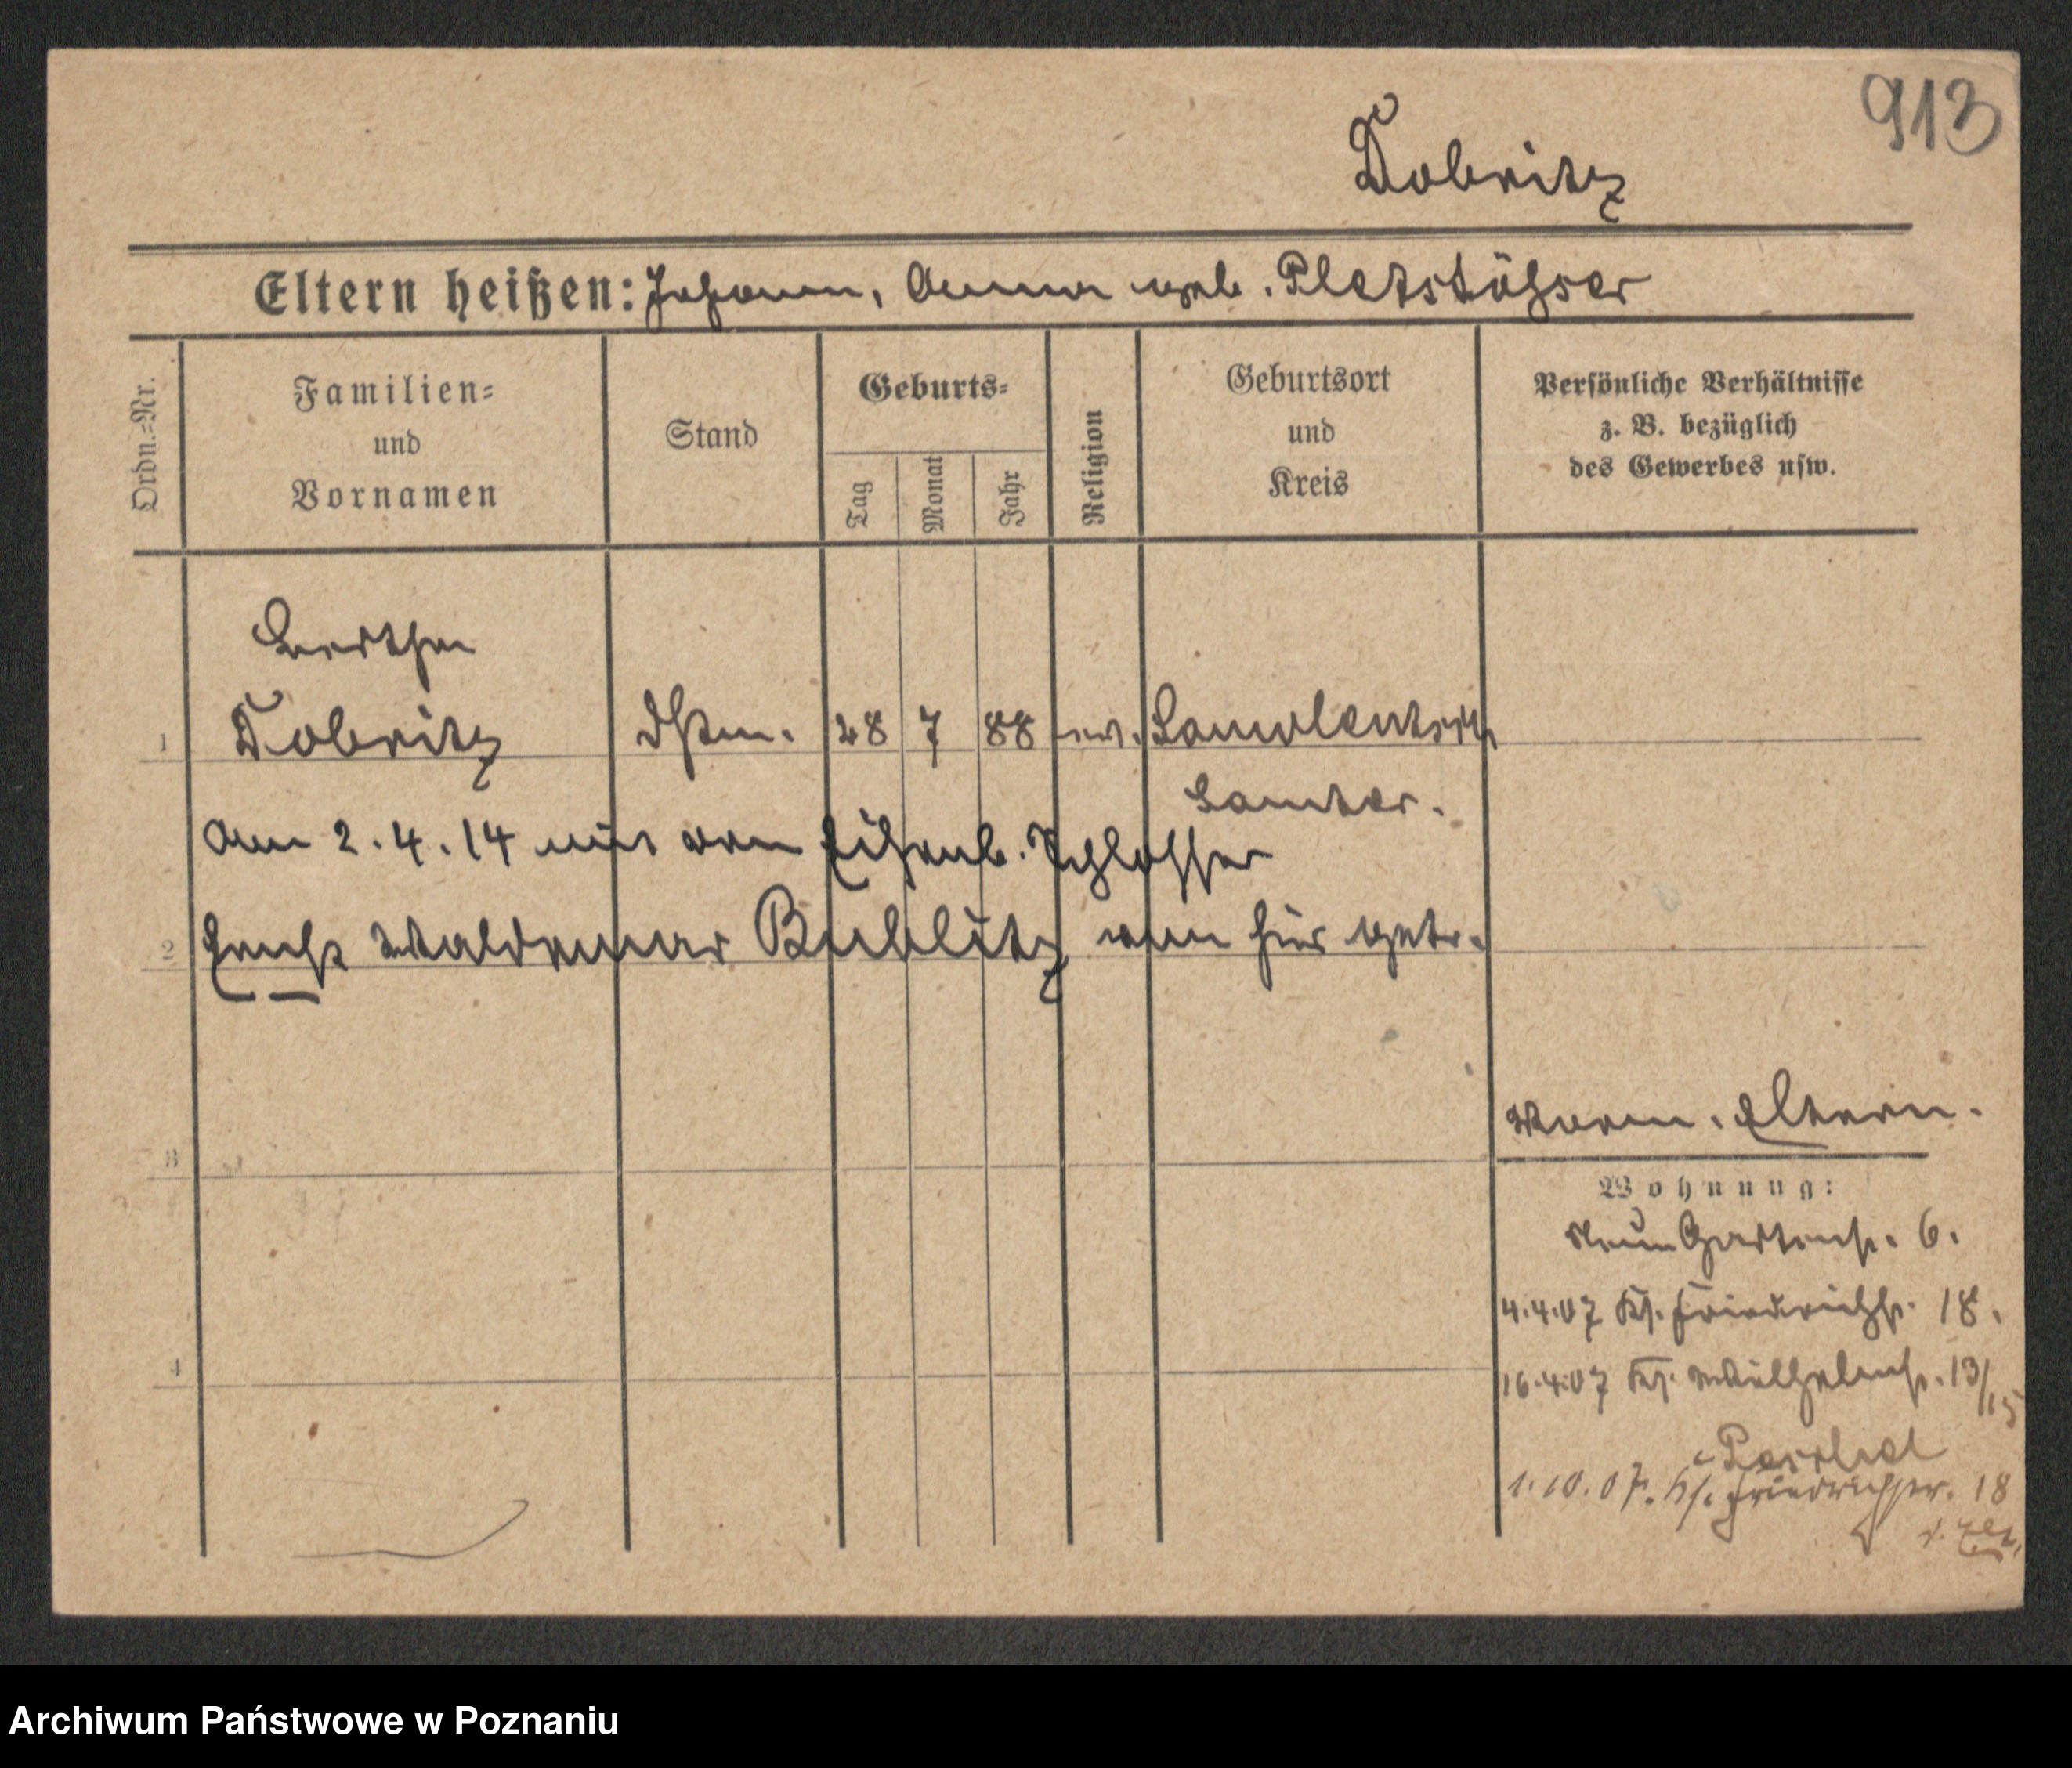 913
Dobritz
Eltern heißen: Johann, Anna geb. Pletstößer
Ordn.=Nr.
Familien=
und
Vornamen
Stand
Geburts=
Tag
Monat
Jahr
Religion
Geburtsort
und
Kreis
Persönliche Verhältnisse
z. B. bezüglich
des Gewerbes usw.
Bertha
1 Dobritz Dstm. 28 7 88 ev.
Samter.
Am 2.4.14 mit dem Eisenb. Schlosser
2 Ernst Waldemar Bublitz von hier getr.
Vorm. Eltern.
3
Wohnung:
Neue Gartenstr. 6.
4.4.07 Ks. Friedrichstr. 18.
4
16.4.07 Ks. Wilhelmstr. 13/15
1.10.07. Ks. Friedrichstr. 18
Archiwum Państwowe w Poznaniu